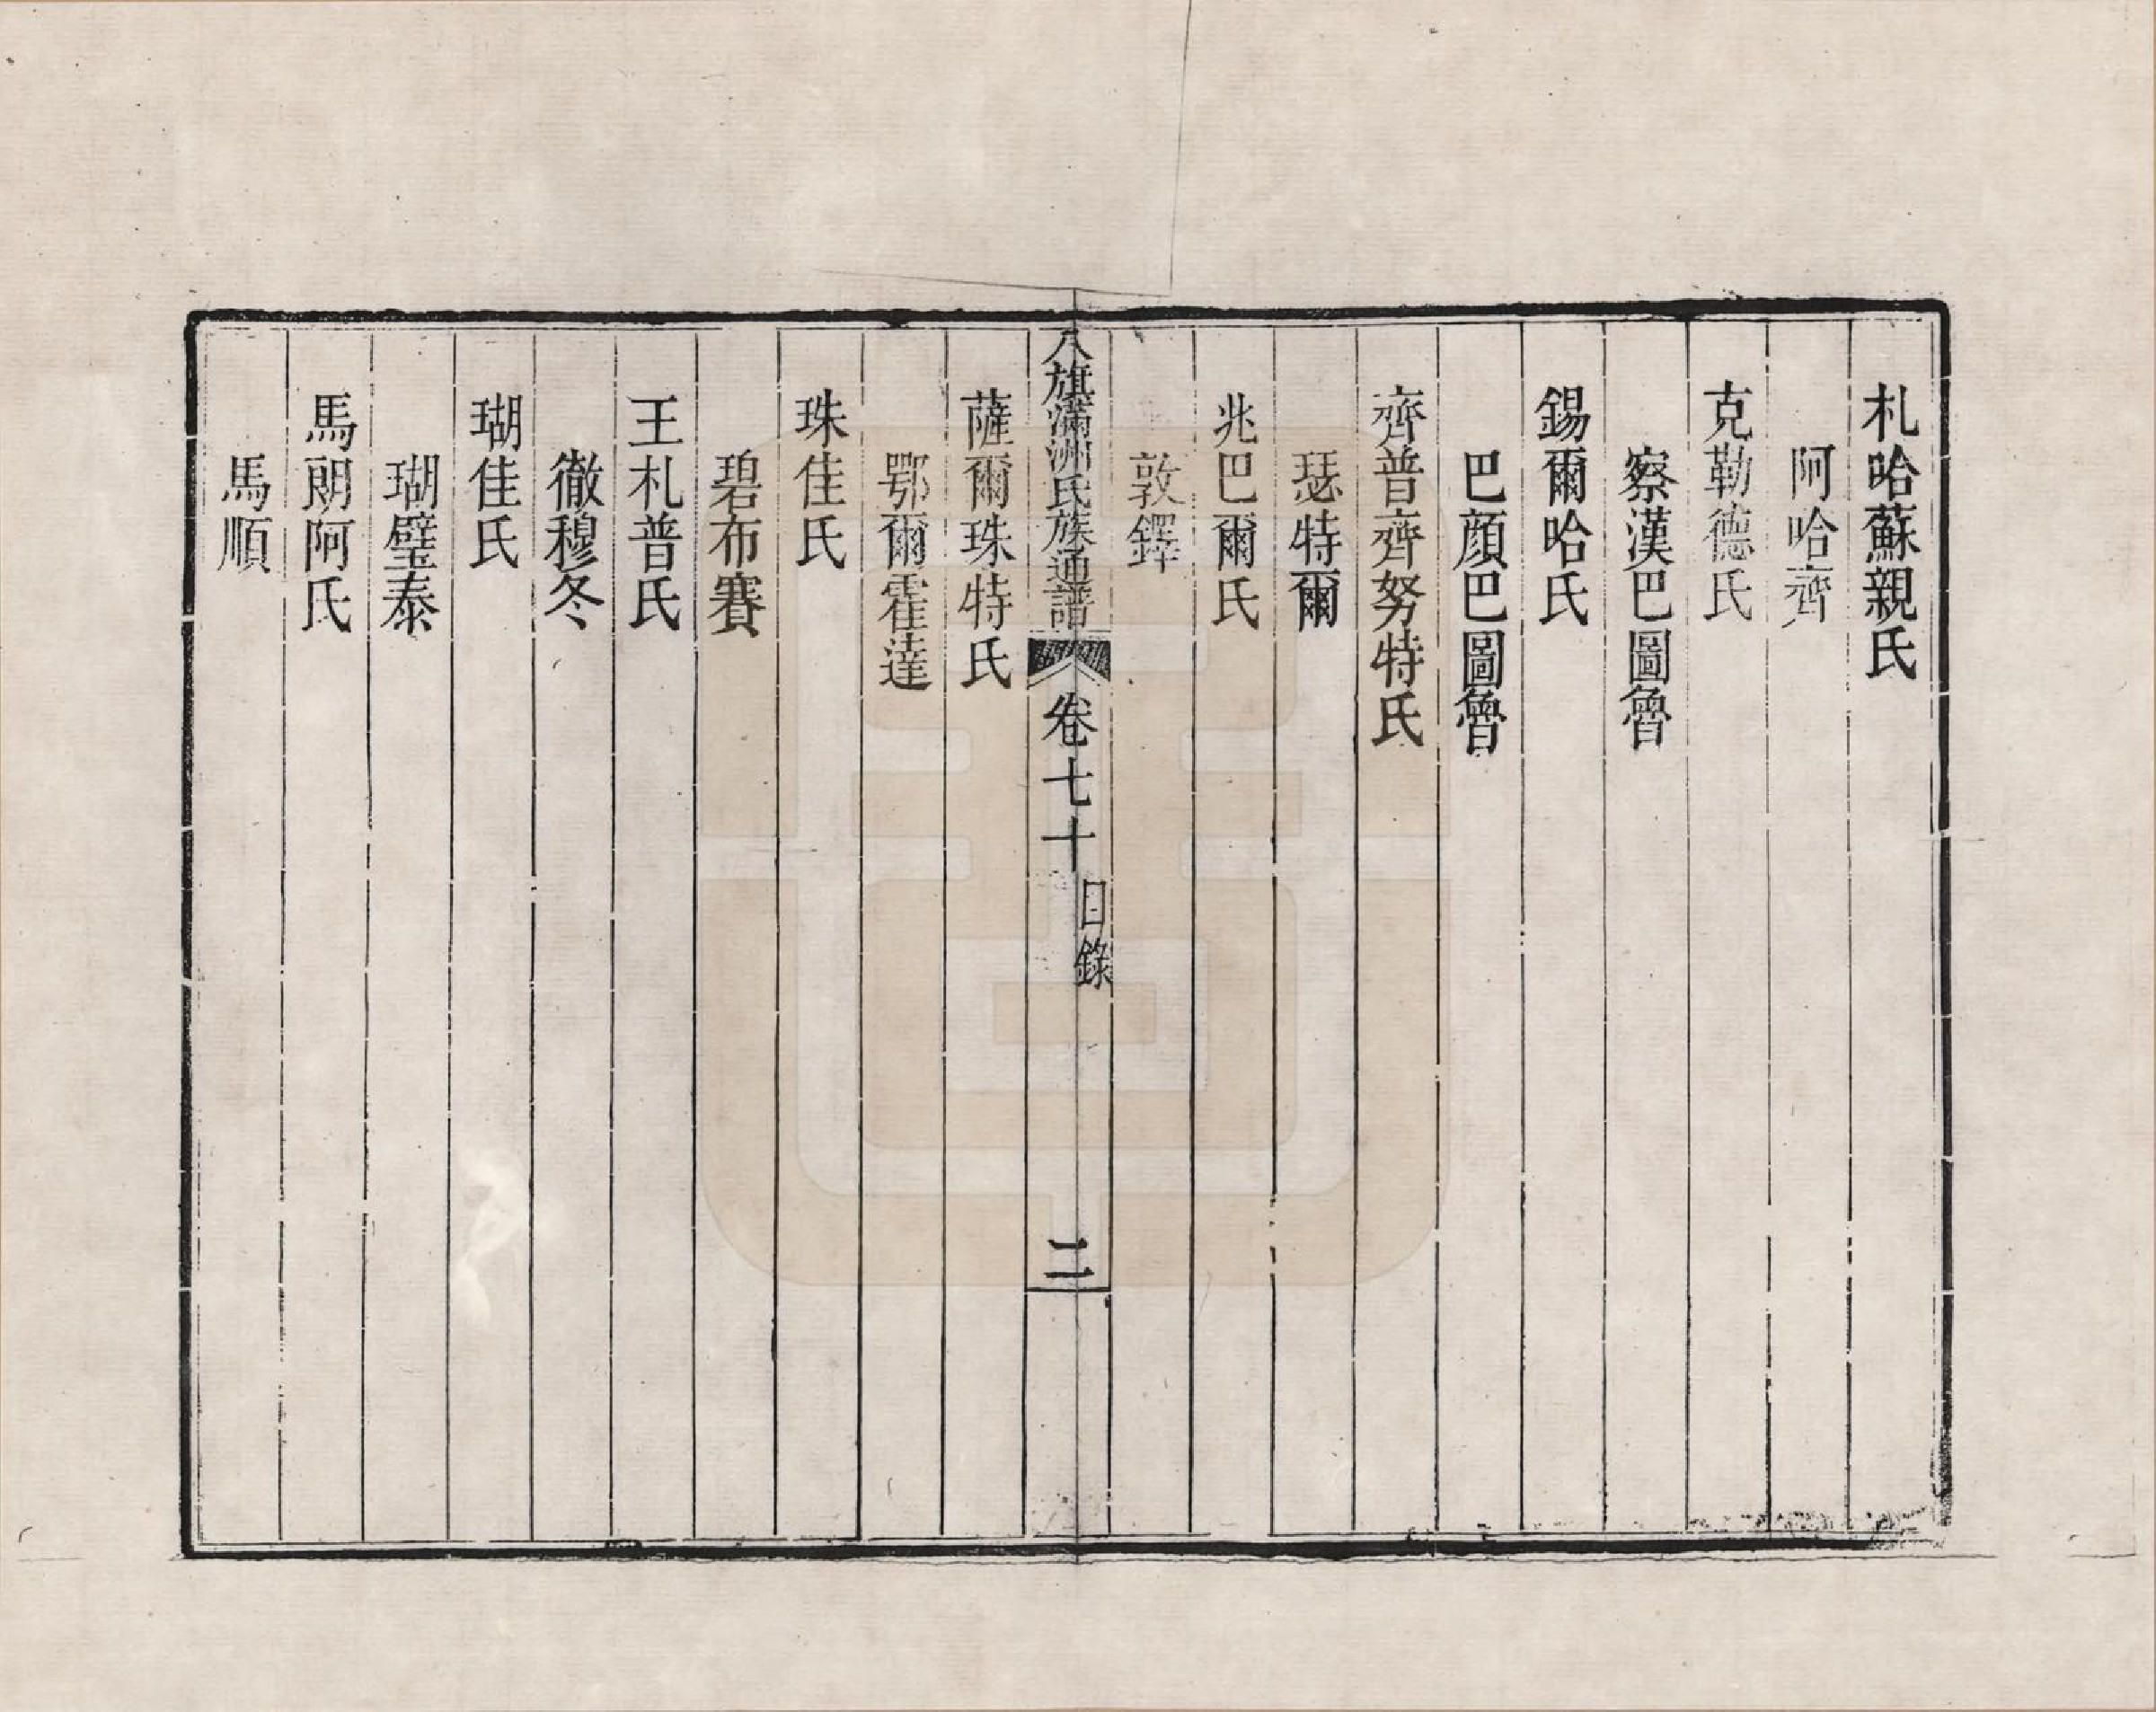 札哈蘇親氏
阿哈齊
克勒德氏
察漢巴圖魯
錫爾哈氏
巴顏巴圖魯
齊普齊努特氏
瑟特爾
兆巴爾氏
敦鐸
八旗滿洲氏族通譜 卷七十 目錄 二
薩爾珠特氏
鄂爾霍達
珠佳氏
碧布賽
王札普氏
徹穆冬
瑚佳氏
瑚璧泰
馬朗阿氏
馬順